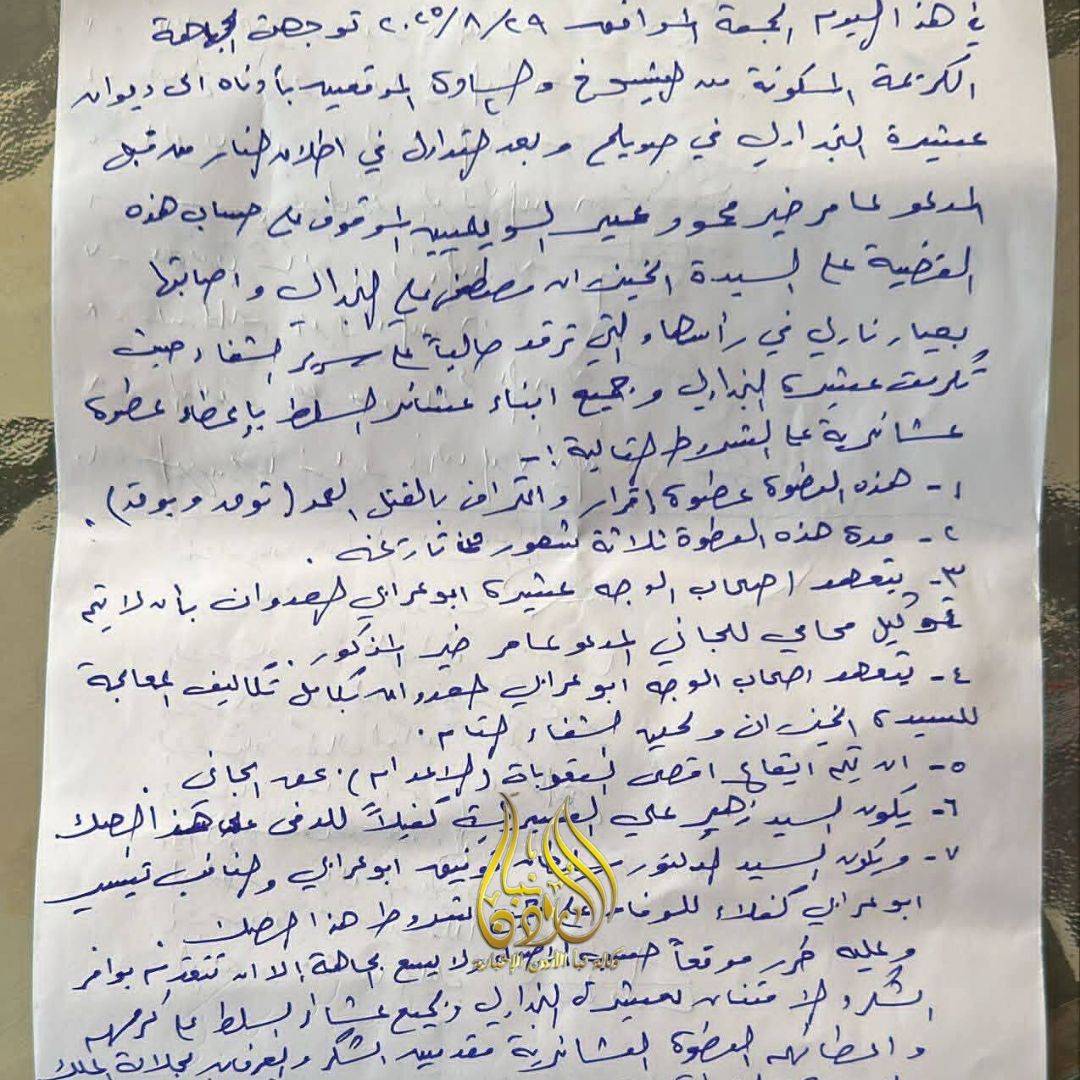 في هذا اليوم الجمعة الموافق ٢٠٢٥/٨/٢٩ توجهت الجاهة
الكريمة المكونة من الشيوخ و السادة الموقعين بأدناه الى ديوان
عشيرة النجداوي في صويلح و بعد التداول في اطلاق النار من قبل
المدعو عامر خير محمود السويلميين الموقوف على حساب هذه
القضية على السيدة الخيزران مصطفى علي النجداوي و اصابتها
بعيار ناري في رأسها و التي ترقد حالياً على سرير الشفاء حيث
تكرمت عشيرة النجداوي و جميع ابناء عشائر السلط بإعطاء عطوة
عشائرية على الشروط التالية :-
١- هذه العطوة عطوة اقرار و اعتراف بالقتل العمد ( ) .
٢- مدة هذه العطوة ثلاثة شهور من تاريخه .
٣- يتعهد اصحاب الوجه عشيرة ابو عرابي العدوان بأن لا يتم
توكيل محامي للجاني المدعو عامر خير المذكور .
٤- يتعهد اصحاب الوجه ابو عرابي العدوان بكامل تكاليف المعالجة
للسيدة الخيزران و لحين الشفاء التام .
٥- ان يتم ايقاع اقصى العقوبات (الاعدام) بحق الجاني .
٦- يكون السيد زهير علي كفيلاً للدفى على هذا الصك
٧- و يكون السيد الدكتور توفيق ابو عرابي و النائب
ابو عرابي كفلاء للوفاء على شروط هذا الصك .
و عليه حرر موقعاً حسب الاصول ولا يسع الجاهة إلا ان تتقدم بوافر
الشكر و الامتنان لعشيرة النجداوي و جميع عشائر السلط على كرمهم
و اعطائهم العطوة العشائرية مقدمين الشكر و العرفان لجلالة الملك
نبأ الأردن
وكالة نبأ الأردن الإخبارية